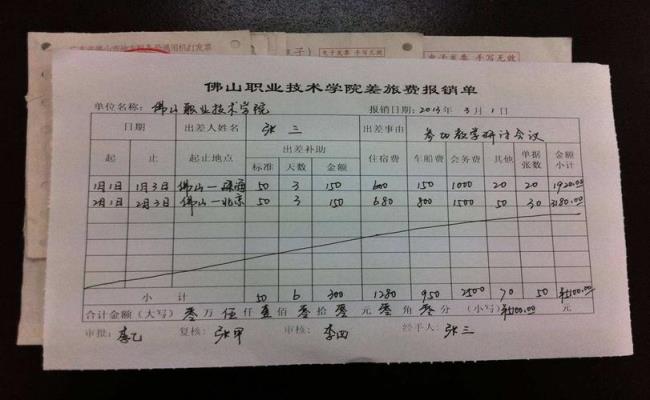 电子发票 手写无效
电子发票 手写无效
佛山职业技术学院差旅费报销单
单位名称: 佛山职业技术学院 报销日期: 2013年 3月 1日
日期 出差人姓名 张三 出差事由 参加教学研讨会议
起 止 起止地点 出差补助 住宿费 车船费 会务费 其他 单据张数 金额小计
标准 天数 金额
1月1日 1月3日 佛山—珠海 50 3 150 600 150 1000 20 20 1920.00
2月1日 2月3日 佛山—北京 50 3 150 680 800 1500 50 30 3180.00
小计 50 6 300 1280 950 2500 70 50 ¥5100.00
合计金额(大写) 万 伍仟 壹佰 拾 元 角 分 (小写) ¥5100.00 元
审批: 李乙 复核: 张甲 审核: 李四 经手人: 张三